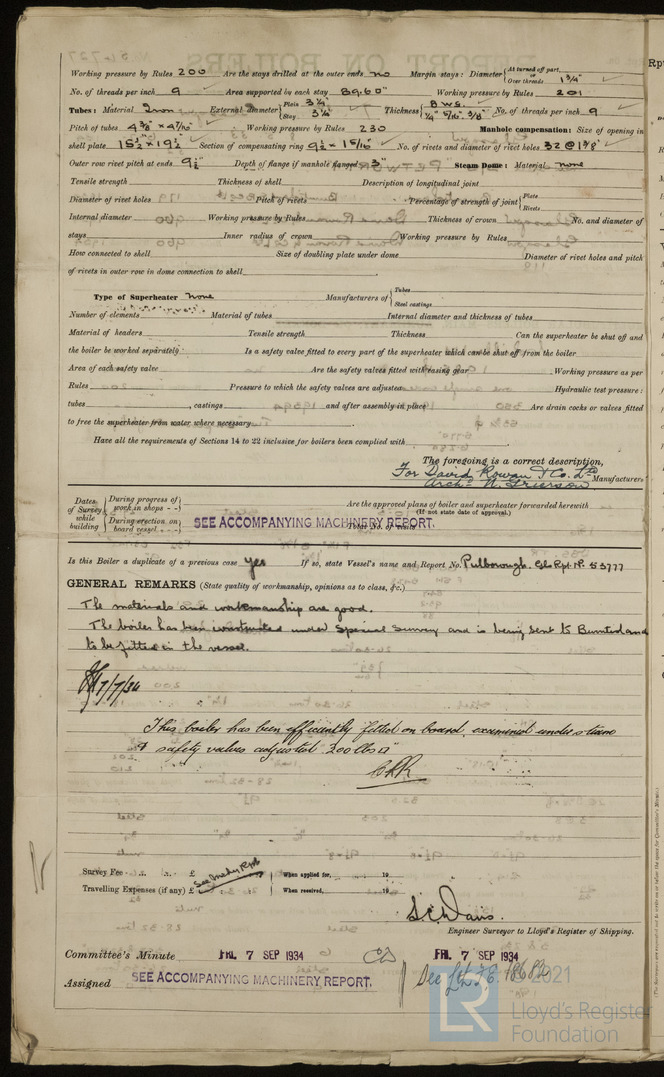 Working pressure by Rules 200 Are the stays drilled at the outer ends no Margin stays: Diameter { At turned off part, Over threads 1 3/4"
No. of threads per inch 9 Area supported by each stay 89.60" Working pressure by Rules 201
Tubes: Material Iron External diameter { Plain 3 1/4" Stay 3 1/4" Thickness { 8 W.G. 1/4" 5/16" 3/8" No. of threads per inch 9
Pitch of tubes 4 3/8" x 4 7/16" Working pressure by Rules 230 Manhole compensation: Size of opening in
shell plate 15 1/2" x 19 1/2" Section of compensating ring 9 1/2" x 15/16" No. of rivets and diameter of rivet holes 32 @ 1 1/8"
Outer row rivet pitch at ends 9 1/2" Depth of flange if manhole flanged 3" Steam Dome: Material none
Tensile strength Thickness of shell Description of longitudinal joint
Diameter of rivet holes Pitch of rivets Percentage of strength of joint { Plate Rivets
Internal diameter Working pressure by Rules Thickness of crown No. and diameter of
stays Inner radius of crown Working pressure by Rules
How connected to shell Size of doubling plate under dome Diameter of rivet holes and pitch
of rivets in outer row in dome connection to shell
Type of Superheater none Manufacturers of { Tubes Steel castings
Number of elements Material of tubes Internal diameter and thickness of tubes
Material of headers Tensile strength Thickness Can the superheater be shut off and
the boiler be worked separately Is a safety valve fitted to every part of the superheater which can be shut off from the boiler
Area of each safety valve Are the safety valves fitted with easing gear Working pressure as per
Rules Pressure to which the safety valves are adjusted Hydraulic test pressure:
tubes , castings and after assembly in place Are drain cocks or valves fitted
to free the superheater from water where necessary
Have all the requirements of Sections 14 to 22 inclusive for boilers been complied with
The foregoing is a correct description,
For David Rowan & Co. Ltd
Archd. N. Grierson Manufacturer
Dates of Survey while building { During progress of work in shops - - During erection on board vessel - - -
Are the approved plans of boiler and superheater forwarded herewith
(If not state date of approval.)
SEE ACCOMPANYING MACHINERY REPORT. Total No. of visits
Is this Boiler a duplicate of a previous case yes If so, state Vessel's name and Report No. Pulborough. Gls Rpt No. 53777
GENERAL REMARKS (State quality of workmanship, opinions as to class, &c.)
The materials and workmanship are good.
The boiler has been constructed under Special Survey and is being sent to Burntisland
to be fitted in the vessel.
7/7/34
This boiler has been efficiently fitted on board, examined under steam
& safety valves adjusted 200 lbs □"
Survey Fee ... £ See Mchy Rpt When applied for, 19
Travelling Expenses (if any) £ When received, 19
Engineer Surveyor to Lloyd's Register of Shipping.
Committee's Minute FRI. 7 SEP 1934 FRI. 7 SEP 1934
Assigned SEE ACCOMPANYING MACHINERY REPORT.
See
2021
LR
Lloyd's Register
Foundation